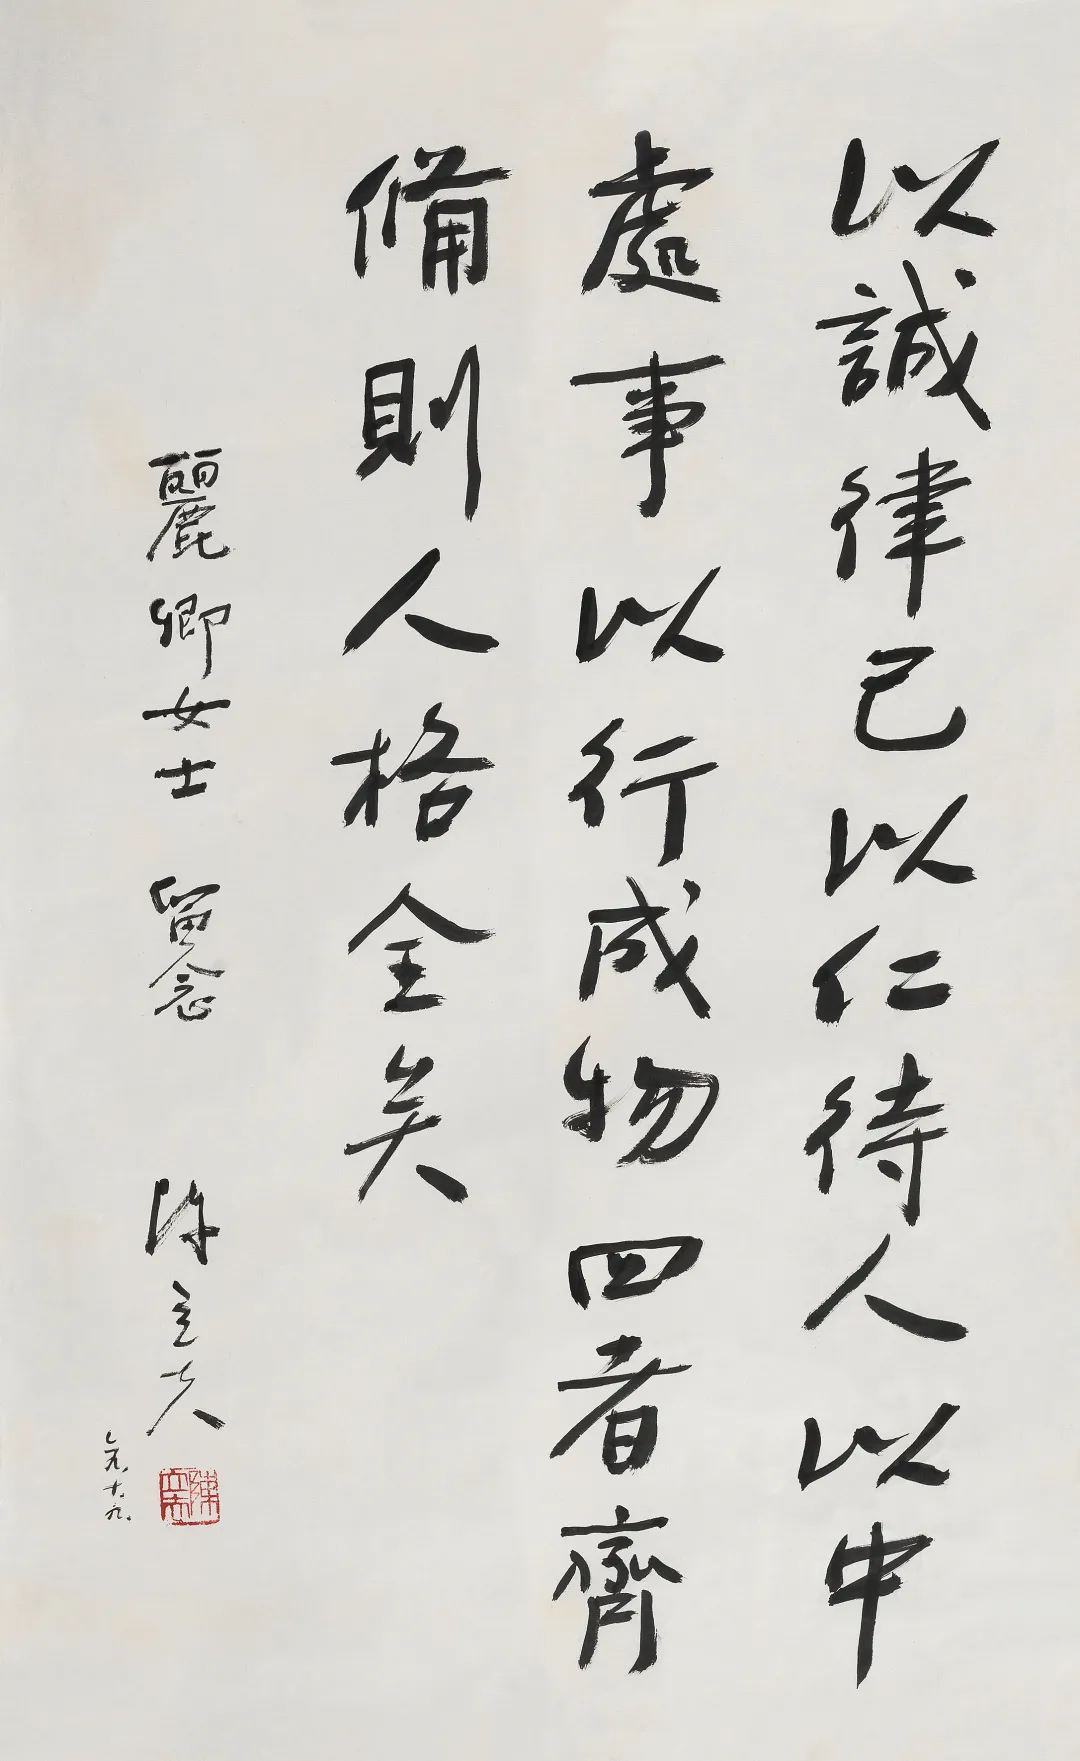 以誠律己以仁待人以中
處事以行成物四者齊
備則人格全矣
麗卿女士 留念
陳立夫
陳立夫